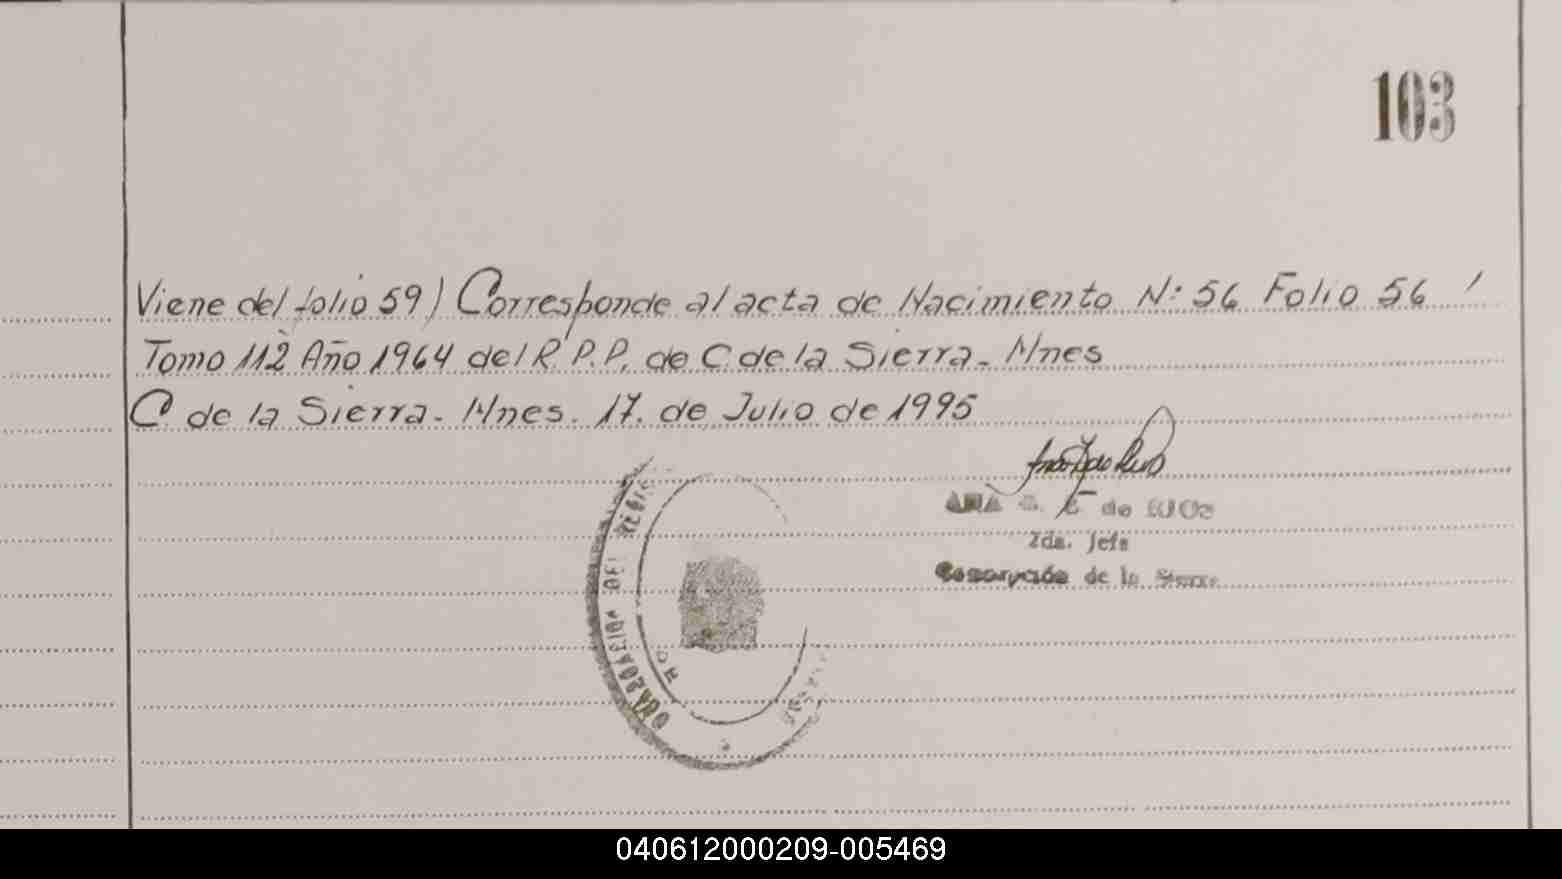 103
Viene del folio 59) Corresponde al acta de Nacimiento N: 56 Folio 56
Tomo 112 Año 1964 del R.P.P. de C de la Sierra - Mnes
C de la Sierra - Mnes. 17. de Julio de 1995
ANA
2da. Jefe
de la Sierra
DEL
DE
040612000209-005469